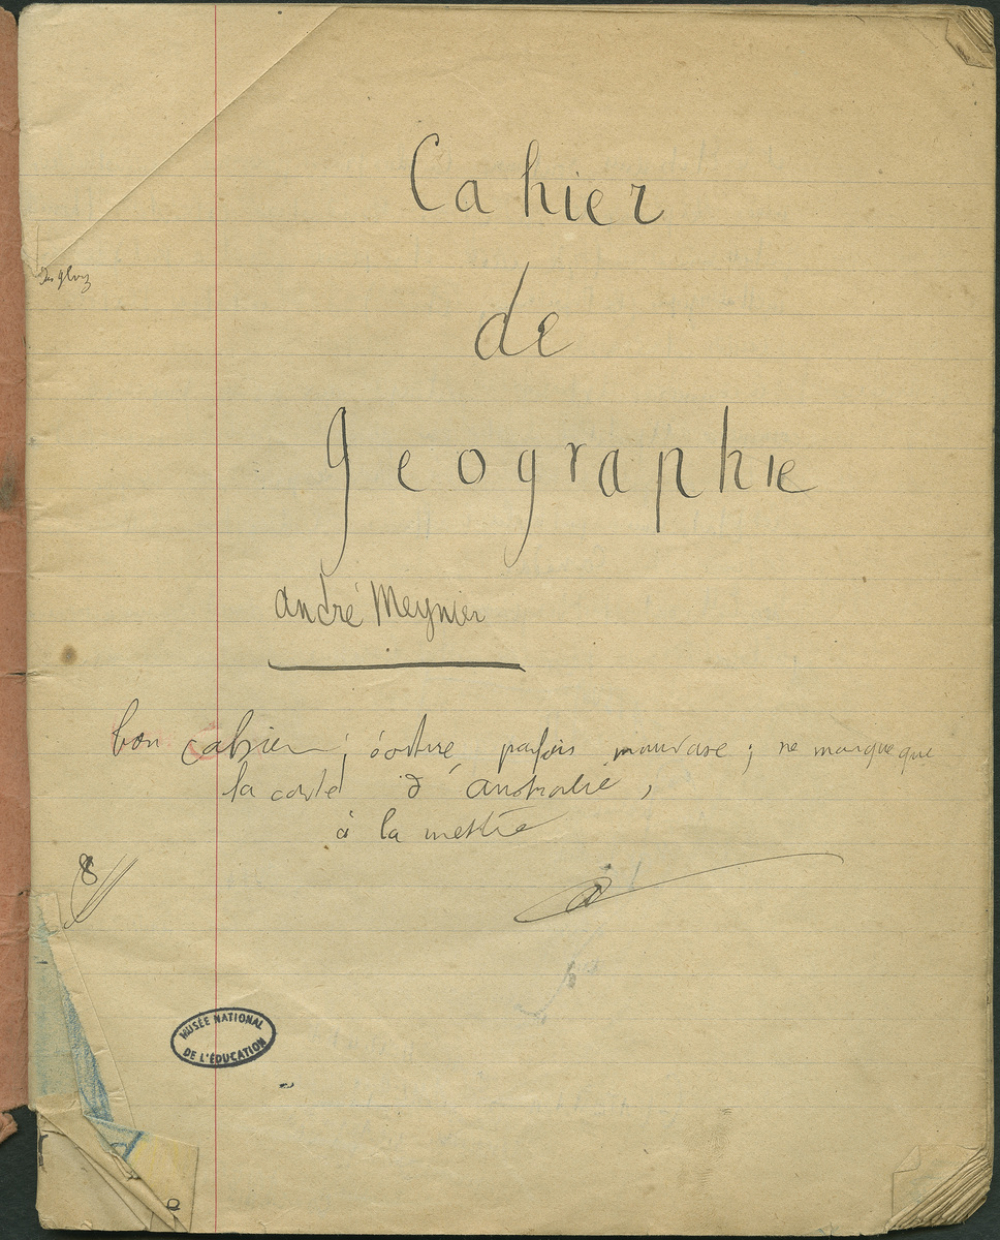 Cahier
de
geographie
andré Meynier
bon cahier ; écriture parfois mauvaise ; ne manque que
la carte d'Australie,
à la mettre
8
MUSÉE NATIONAL
DE L'ÉDUCATION